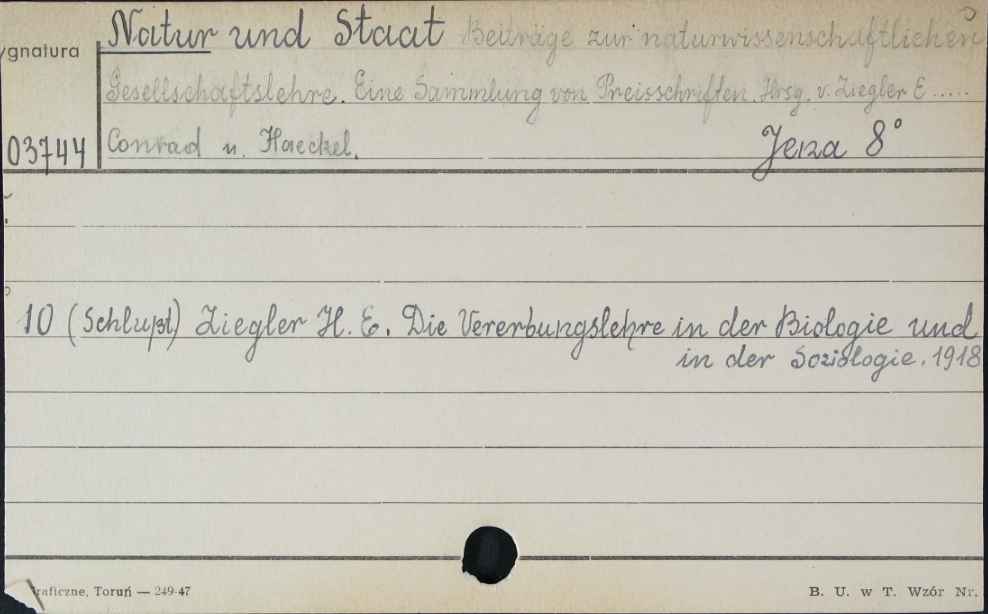 Natur und Staat Beiträge zur naturwissenschaftlichen
ygnatura
Gesellschaftslehre. Eine Sammlung von Preisschriften. Hrsg. v. Ziegler E.....
03744 Conrad u. Haeckel. Jena 8°
10 (Schlußt) Ziegler H. E. Die Vererbungslehre in der Biologie und
in der Soziologie. 1918
raficzne, Toruń — 249-47 B. U. w T. Wzór Nr.